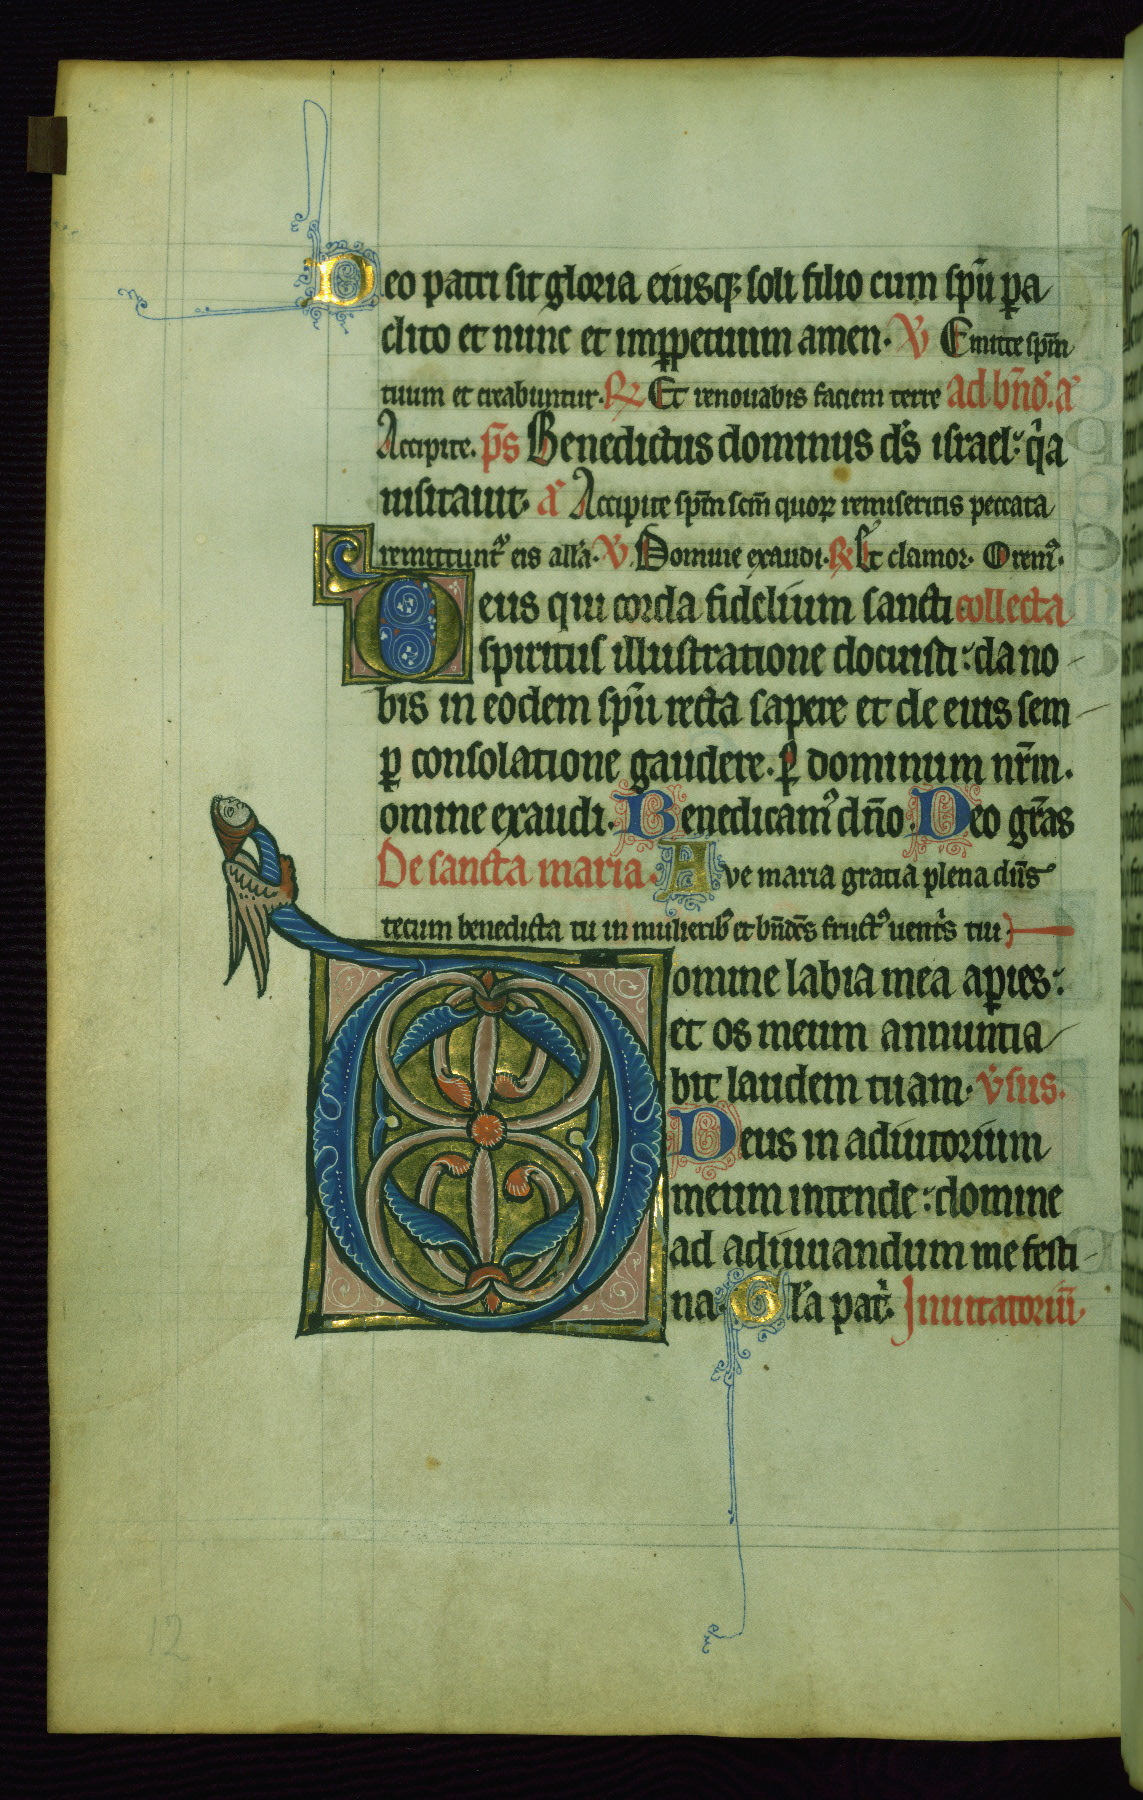 Deo patri sit gloria eiusq; soli filio cum spũ pa
clito et nunc et imppetuum amen. V Emitte spm̃
tuum et creabuntur. R Et renouabis faciem terre ad bñd. a
Accipite. ps Benedictus dominus ds israel: qa
uisitauit. a Accipite spm̃ scm̃ quoꝝ remiseritis peccata
remittunt᷑ eis alla. V. Domine exaudi. R Et clamor. Orem᷒.
Deus qui corda fidelium sancti collecta
spiritus illustratione docuisti: da no
bis in eodem spũ recta sapere et de eius sem
ꝑ consolatione gaudere. ꝑ dominum nrm̃.
omine exaudi. Benedicam᷒ dño. Deo gras
De sancta maria. Aue maria gratia plena dñs
tecum benedicta tu in mulierib᷒ et bñdcs fruct᷒ uentrs tui
Domine labia mea apies:
et os meum annuntia
bit laudem tuam. vsus.
Deus in adiutorium
meum intende: domine
ad adiuuandum me festi
na. Gla pat. Inuitatoriũ
12